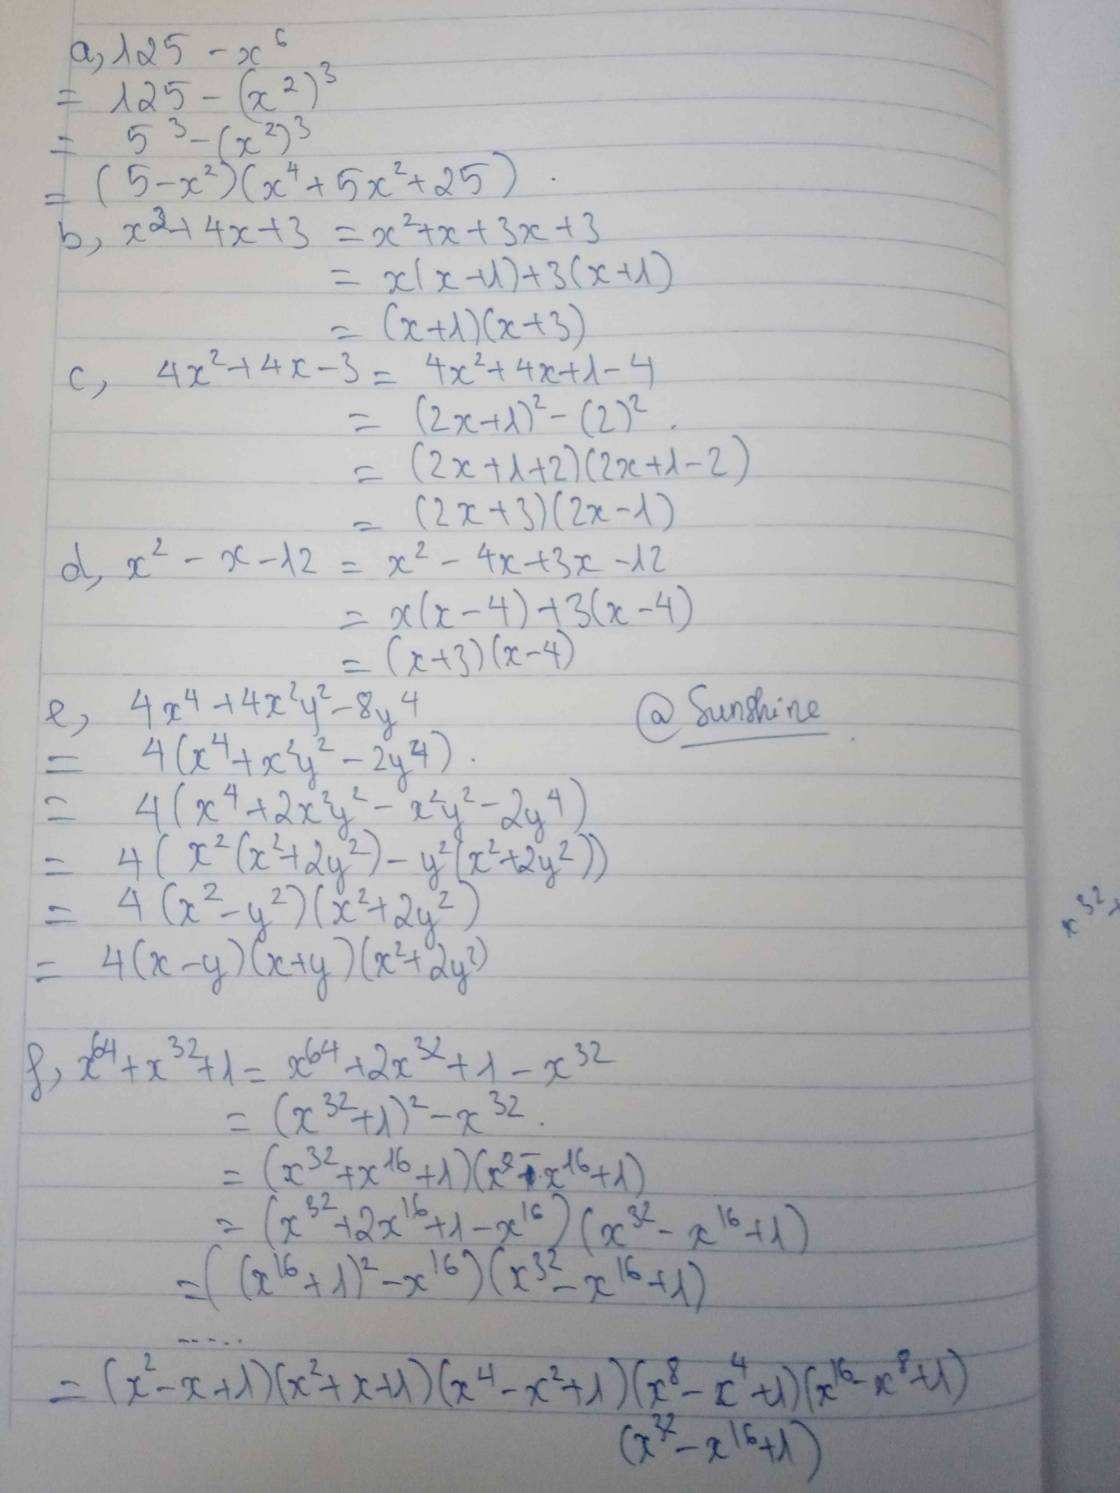 a, 125 - x⁶
= 125 - (x²)³
= 5³ - (x²)³
= (5 - x²)(x⁴ + 5x² + 25) .
b, x² + 4x + 3 = x² + x + 3x + 3
= x(x + 1) + 3(x + 1)
= (x + 1)(x + 3)
c, 4x² + 4x - 3 = 4x² + 4x + 1 - 4
= (2x + 1)² - (2)² .
= (2x + 1 + 2)(2x + 1 - 2)
= (2x + 3)(2x - 1)
d, x² - x - 12 = x² - 4x + 3x - 12
= x(x - 4) + 3(x - 4)
= (x + 3)(x - 4)
e, 4x⁴ + 4x²y² - 8y⁴
@Sunshine .
= 4(x⁴ + x²y² - 2y⁴) .
= 4(x⁴ + 2x²y² - x²y² - 2y⁴)
= 4(x²(x² + 2y²) - y²(x² + 2y²))
= 4(x² - y²)(x² + 2y²)
= 4(x - y)(x + y)(x² + 2y²)
x³² +
f, x⁶⁴ + x³² + 1 = x⁶⁴ + 2x³² + 1 - x³²
= (x³² + 1)² - x³² .
= (x³² + x¹⁶ + 1)(x³² - x¹⁶ + 1)
= (x³² + 2x¹⁶ + 1 - x¹⁶)(x³² - x¹⁶ + 1)
= ((x¹⁶ + 1)² - x¹⁶)(x³² - x¹⁶ + 1)
.....
= (x² - x + 1)(x² + x + 1)(x⁴ - x² + 1)(x⁸ - x⁴ + 1)(x¹⁶ - x⁸ + 1)
(x³² - x¹⁶ + 1)